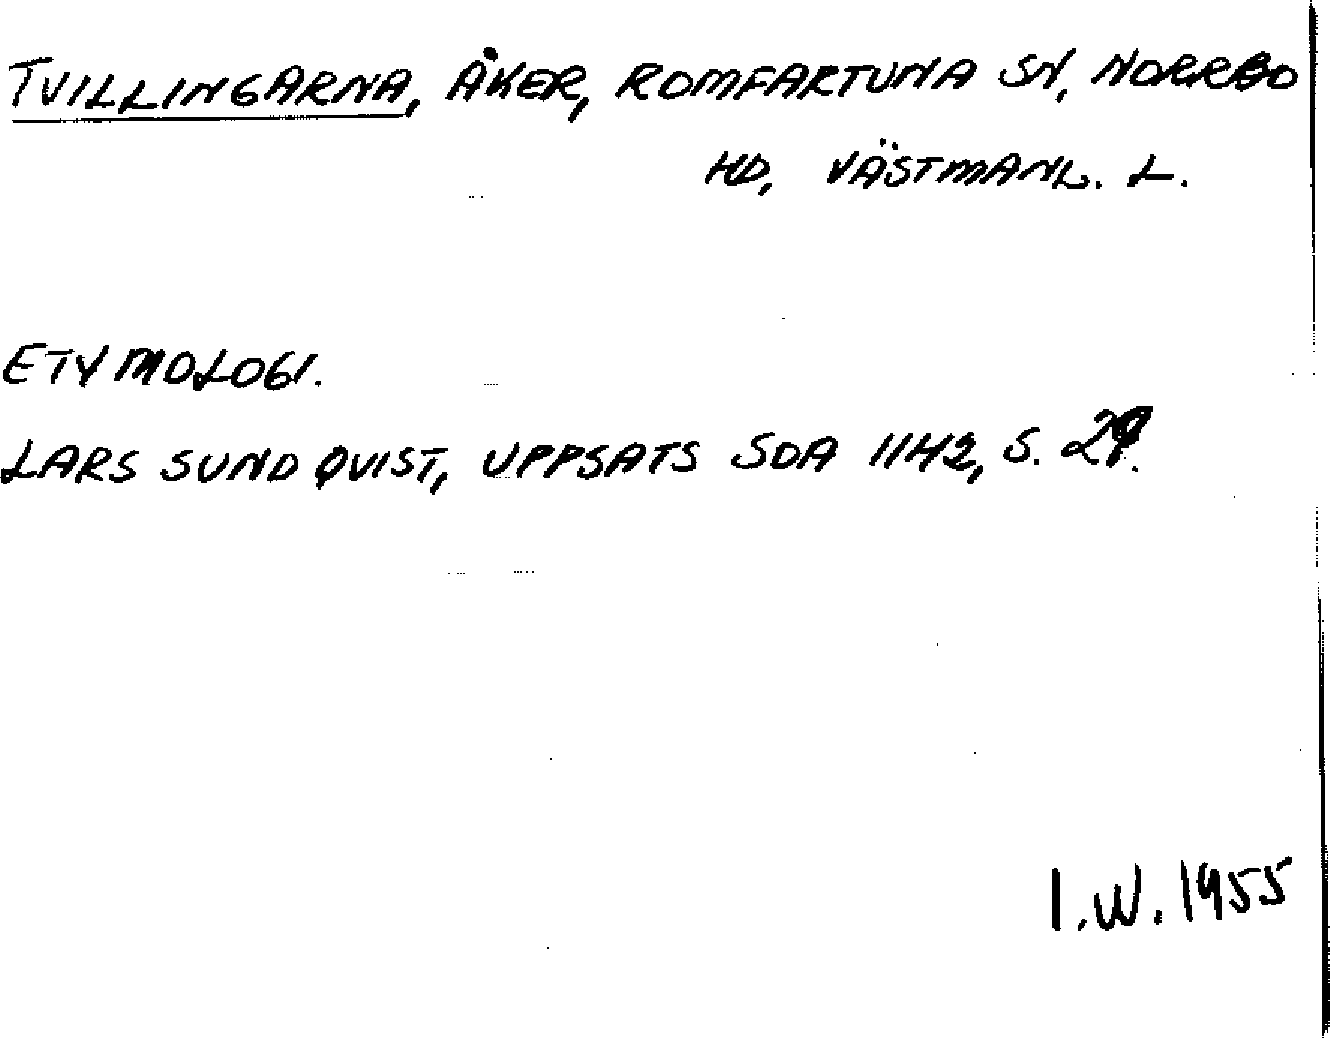 TVILLINGARNA, ÅKER, ROMFARTUNA SN, NORRBO
HD, VÄSTMANL. L.
ETYMOLOGI.
LARS SUNDQVIST, UPPSATS SOA 1142, S. 29.
I.W. 1955